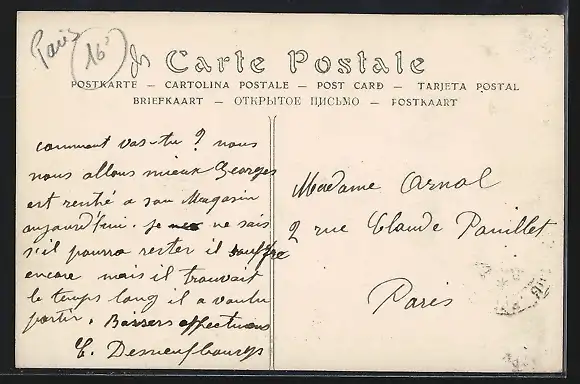 Paris 16e
Carte Postale
POSTKARTE — CARTOLINA POSTALE — POST CARD — TARJETA POSTAL
BRIEFKAART — ОТКРЫТОЕ ПИСЬМО — POSTKAART
comment vas-tu ? nous
nous allons mieux Georges
est rentré a son Magasin
aujourd'hui. je ne sais
s'il pourra rester il souffre
encore mais il trouvait
le temps long il a voulu
partir. Baisers affectueux
E. Desneufbourgs
Madame Arnal
2 rue Claude Pouillet
Paris